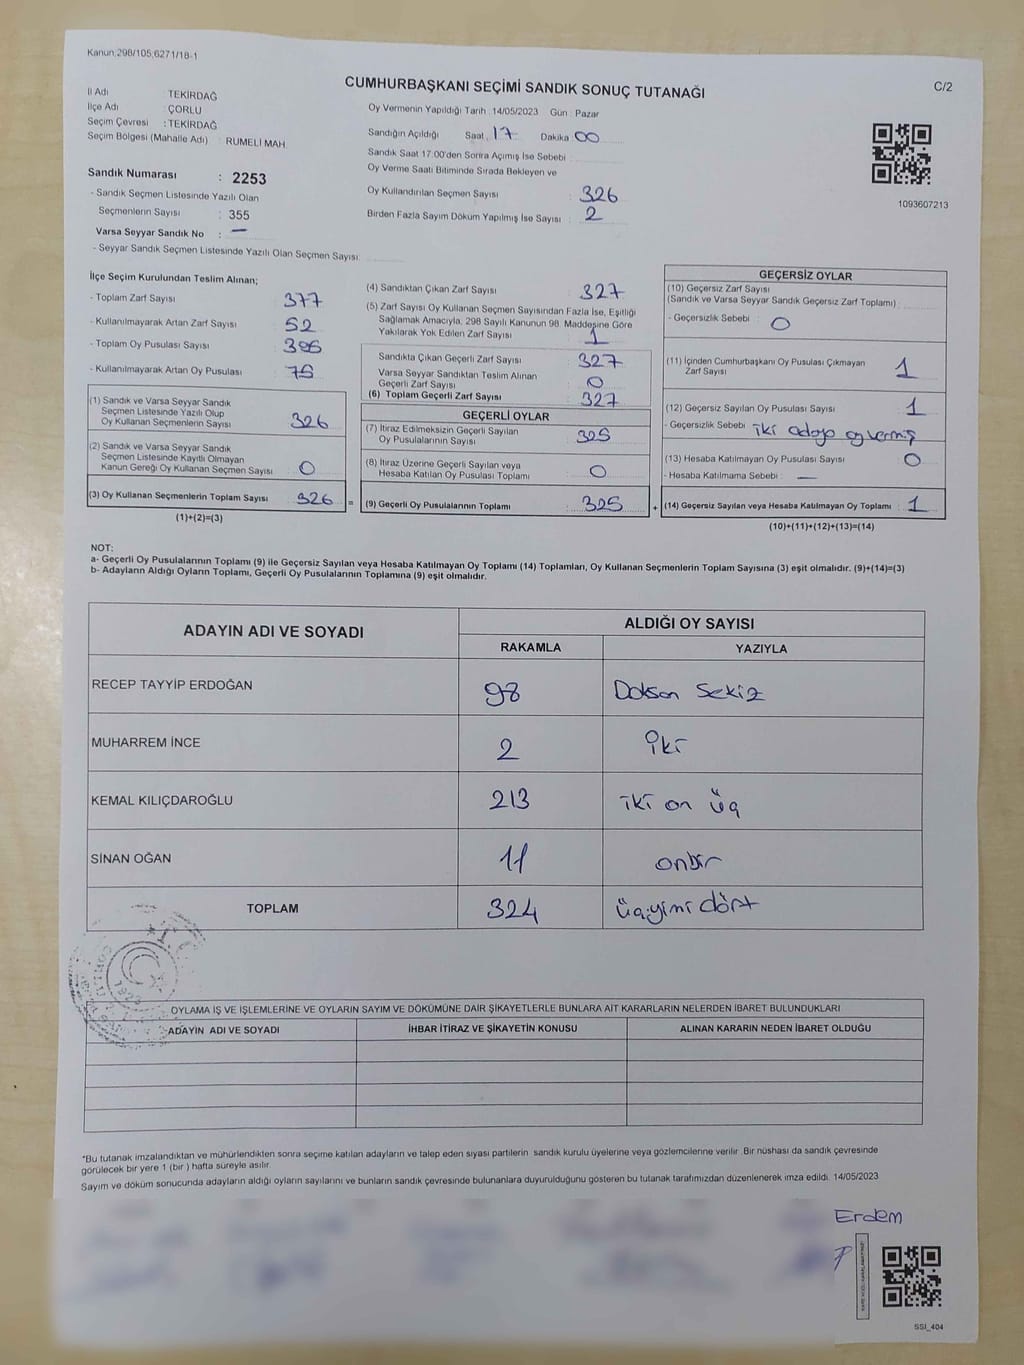 Kanun;298/105;6271/18-1
CUMHURBAŞKANI SEÇİMİ SANDIK SONUÇ TUTANAĞI
C/2
İl Adı TEKİRDAĞ
İlçe Adı ÇORLU
Seçim Çevresi : TEKİRDAĞ
Seçim Bölgesi (Mahalle Adı) RUMELİ MAH.
Oy Vermenin Yapıldığı Tarih :14/05/2023 Gün : Pazar
Sandığın Açıldığı Saat : 17 Dakika : 00
Sandık Saat 17:00'den Sonra Açımış İse Sebebi
Oy Verme Saati Bitiminde Sırada Bekleyen ve
Oy Kullandırılan Seçmen Sayısı : 326
Birden Fazla Sayım Döküm Yapılmış İse Sayısı : 2
1093607213
Sandık Numarası : 2253
- Sandık Seçmen Listesinde Yazılı Olan
Seçmenlerin Sayısı : 355
Varsa Seyyar Sandık No : —
- Seyyar Sandık Seçmen Listesinde Yazılı Olan Seçmen Sayısı:
İlçe Seçim Kurulundan Teslim Alınan;
- Toplam Zarf Sayısı : 377
- Kullanılmayarak Artan Zarf Sayısı : 52
- Toplam Oy Pusulası Sayısı :
- Kullanılmayarak Artan Oy Pusulası : 75
(1) Sandık ve Varsa Seyyar Sandık
Seçmen Listesinde Yazılı Olup
Oy Kullanan Seçmenlerin Sayısı : 326
(2) Sandık ve Varsa Seyyar Sandık
Seçmen Listesinde Kayıtlı Olmayan
Kanun Gereği Oy Kullanan Seçmen Sayısı : 0
(3) Oy Kullanan Seçmenlerin Toplam Sayısı : 326 =
(1)+(2)=(3)
(4) Sandıktan Çıkan Zarf Sayısı : 327
(5) Zarf Sayısı Oy Kullanan Seçmen Sayısından Fazla İse, Eşitliği
Sağlamak Amacıyla, 298 Sayılı Kanunun 98. Maddesine Göre
Yakılarak Yok Edilen Zarf Sayısı : 1
Sandıkta Çıkan Geçerli Zarf Sayısı : 327
Varsa Seyyar Sandıktan Teslim Alınan
Geçerli Zarf Sayısı : 0
(6) Toplam Geçerli Zarf Sayısı : 327
GEÇERLİ OYLAR
(7) İtiraz Edilmeksizin Geçerli Sayılan
Oy Pusulalarının Sayısı : 325
(8) İtiraz Üzerine Geçerli Sayılan veya
Hesaba Katılan Oy Pusulası Toplamı : 0
(9) Geçerli Oy Pusulalarının Toplamı : 325 +
GEÇERSİZ OYLAR
(10) Geçersiz Zarf Sayısı
(Sandık ve Varsa Seyyar Sandık Geçersiz Zarf Toplamı) :
- Geçersizlik Sebebi : 0
(11) İçinden Cumhurbaşkanı Oy Pusulası Çıkmayan
Zarf Sayısı : 1
(12) Geçersiz Sayılan Oy Pusulası Sayısı : 1
- Geçersizlik Sebebi : iki adaya oy vermiş
(13) Hesaba Katılmayan Oy Pusulası Sayısı : 0
- Hesaba Katılmama Sebebi : —
(14) Geçersiz Sayılan veya Hesaba Katılmayan Oy Toplamı : 1
(10)+(11)+(12)+(13)=(14)
NOT:
a- Geçerli Oy Pusulalarının Toplamı (9) ile Geçersiz Sayılan veya Hesaba Katılmayan Oy Toplamı (14) Toplamları, Oy Kullanan Seçmenlerin Toplam Sayısına (3) eşit olmalıdır. (9)+(14)=(3)
b- Adayların Aldığı Oyların Toplamı, Geçerli Oy Pusulalarının Toplamına (9) eşit olmalıdır.
ADAYIN ADI VE SOYADI ALDIĞI OY SAYISI
RAKAMLA YAZIYLA
RECEP TAYYİP ERDOĞAN 98 Doksan Sekiz
MUHARREM İNCE 2 iki
KEMAL KILIÇDAROĞLU 213 iki on üç
SİNAN OĞAN 11 onbir
TOPLAM 324 üçyirmi dört
OYLAMA İŞ VE İŞLEMLERİNE VE OYLARIN SAYIM VE DÖKÜMÜNE DAİR ŞİKAYETLERLE BUNLARA AİT KARARLARIN NELERDEN İBARET BULUNDUKLARI
ADAYIN ADI VE SOYADI İHBAR İTİRAZ VE ŞİKAYETİN KONUSU ALINAN KARARIN NEDEN İBARET OLDUĞU
*Bu tutanak imzalandıktan ve mühürlendikten sonra seçime katılan adayların ve talep eden siyasi partilerin sandık kurulu üyelerine veya gözlemcilerine verilir. Bir nüshası da sandık çevresinde
görülecek bir yere 1 (bir ) hafta süreyle asılır.
Sayım ve döküm sonucunda adayların aldığı oyların sayılarını ve bunların sandık çevresinde bulunanlara duyurulduğunu gösteren bu tutanak tarafımızdan düzenlenerek imza edildi. 14/05/2023
Erdem
SSI_404